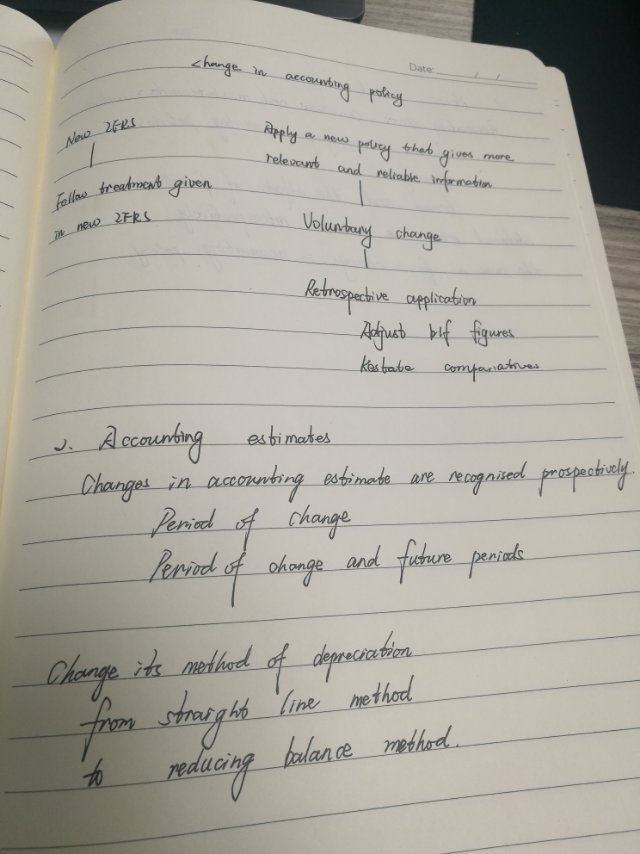 Date:
Change in accounting policy
New IFRS
Follow treatment given
in new IFRS
Apply a new policy that gives more
relevant and reliable information
Voluntary change
Retrospective application
Adjust b/f figures
Restate comparatives
2. Accounting estimates
Changes in accounting estimate are recognised prospectively.
Period of change
Period of change and future periods
Change its method of depreciation
from straight line method
to reducing balance method.